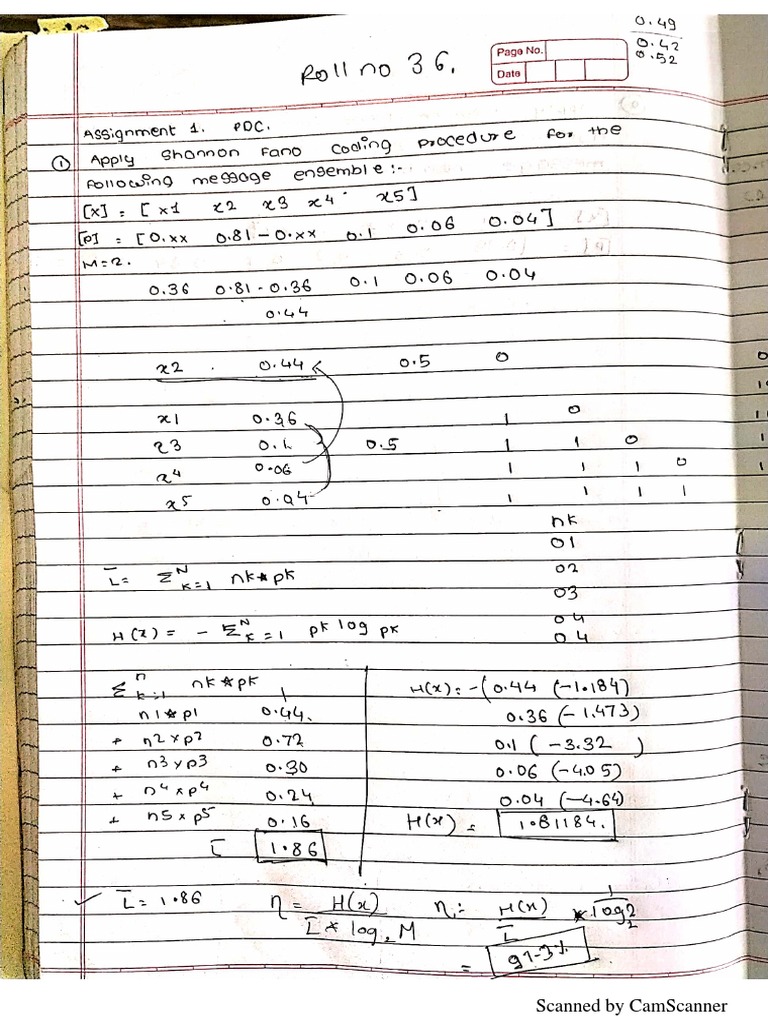 0.49
0.42
0.52
Roll no 36.
Page No.
Date
Assignment 1. PDC.
① Apply Shannon Fano Coding procedure for the
following message ensemble:-
[x] = [ x1 x2 x3 x4 x5]
[p] = [0.xx 0.81-0.xx 0.1 0.06 0.04]
M=2.
0.36 0.81-0.36 0.1 0.06 0.04
0.44
x2 0.44 0.5 0
x1 0.36 1 0
x3 0.1 0.5 1 1 0
x4 0.06 1 1 1 0
x5 0.04 1 1 1 1
nk
01
L̄= Σ^N_k=1 nk*pk 02
03
04
H(x) = - Σ^N_k=1 pk log pk 04
Σ^n_k=1 nk*pk
n1*p1 0.44
+ n2xp2 0.72
+ n3xp3 0.30
+ n4xp4 0.24
+ n5xp5 0.16
L̄ 1.86
H(x)=-(0.44 (-1.184)
0.36 (-1.473)
0.1 (-3.32 )
0.06 (-4.05)
0.04 (-4.64)
H(x) = 1.81184.
✓ L̄=1.86 η = H(x) / L̄* log2 M η = H(x) / L̄ * 1 / log2 2
= 97.3%
Scanned by CamScanner